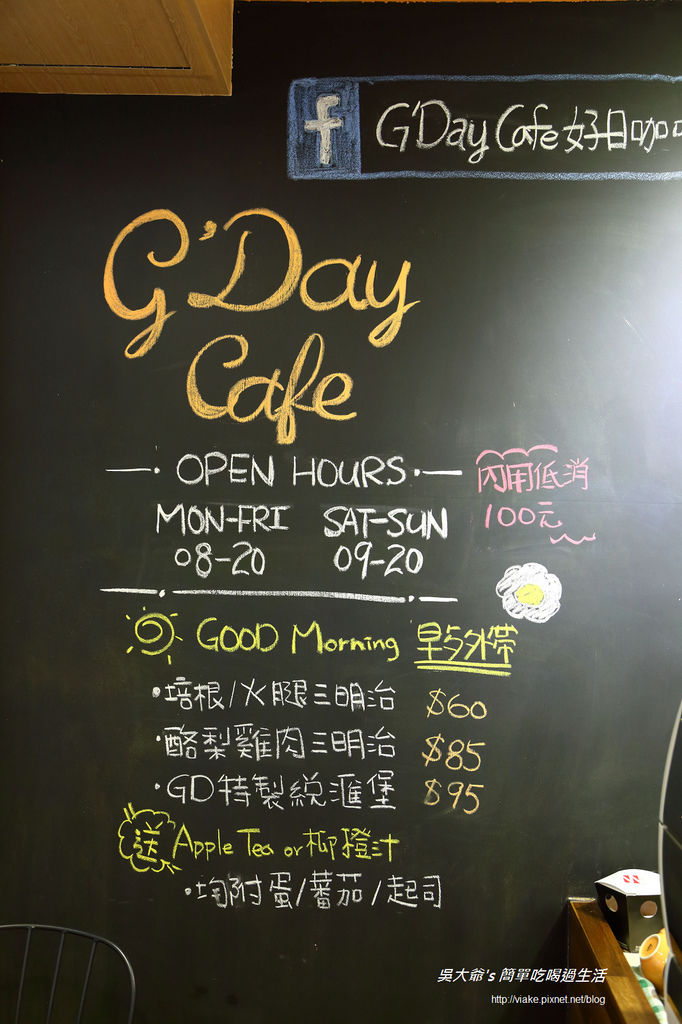 f G'Day Cafe 好日咖
G'Day
Cafe
OPEN HOURS
內用低消
100元
MON-FRI SAT-SUN
08-20 09-20
GOOD Morning 早午外帶
·培根/火腿三明治 $60
·酪梨雞肉三明治 $85
·GD特製總匯堡 $95
送 Apple Tea or 柳橙汁
·均附蛋/蕃茄/起司
吳大爺's 簡單吃喝過生活
http://viake.pixnet.net/blog